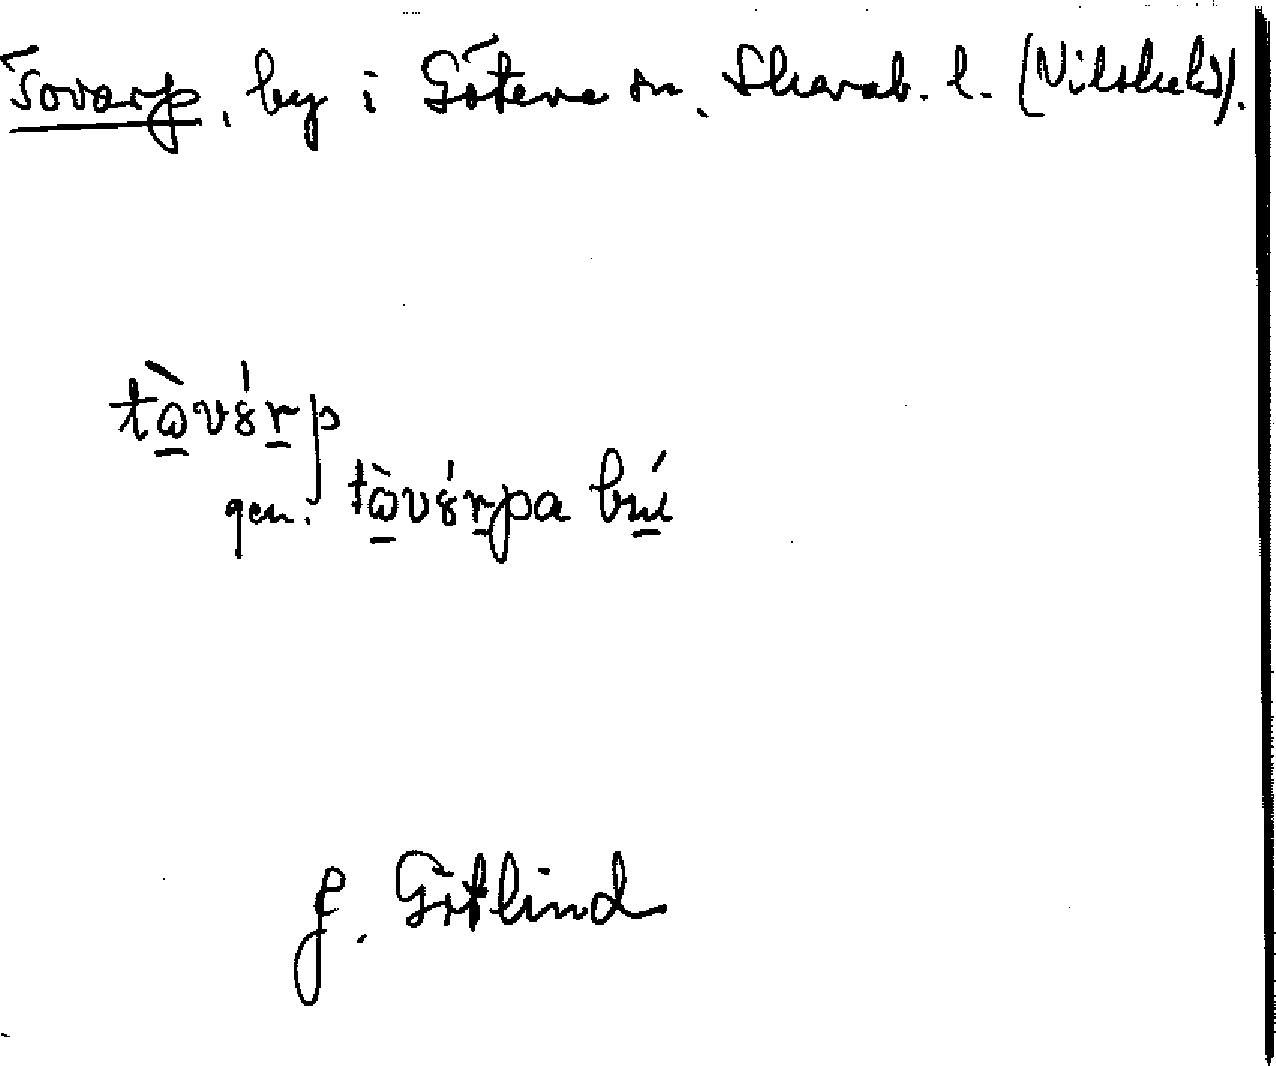 Tovarp, by i Götene sn, Skarab. l. (Vilske hd).
tὼvɤ́rp
gen. tὼvɤ́rpa bɯ́
J. Götlind